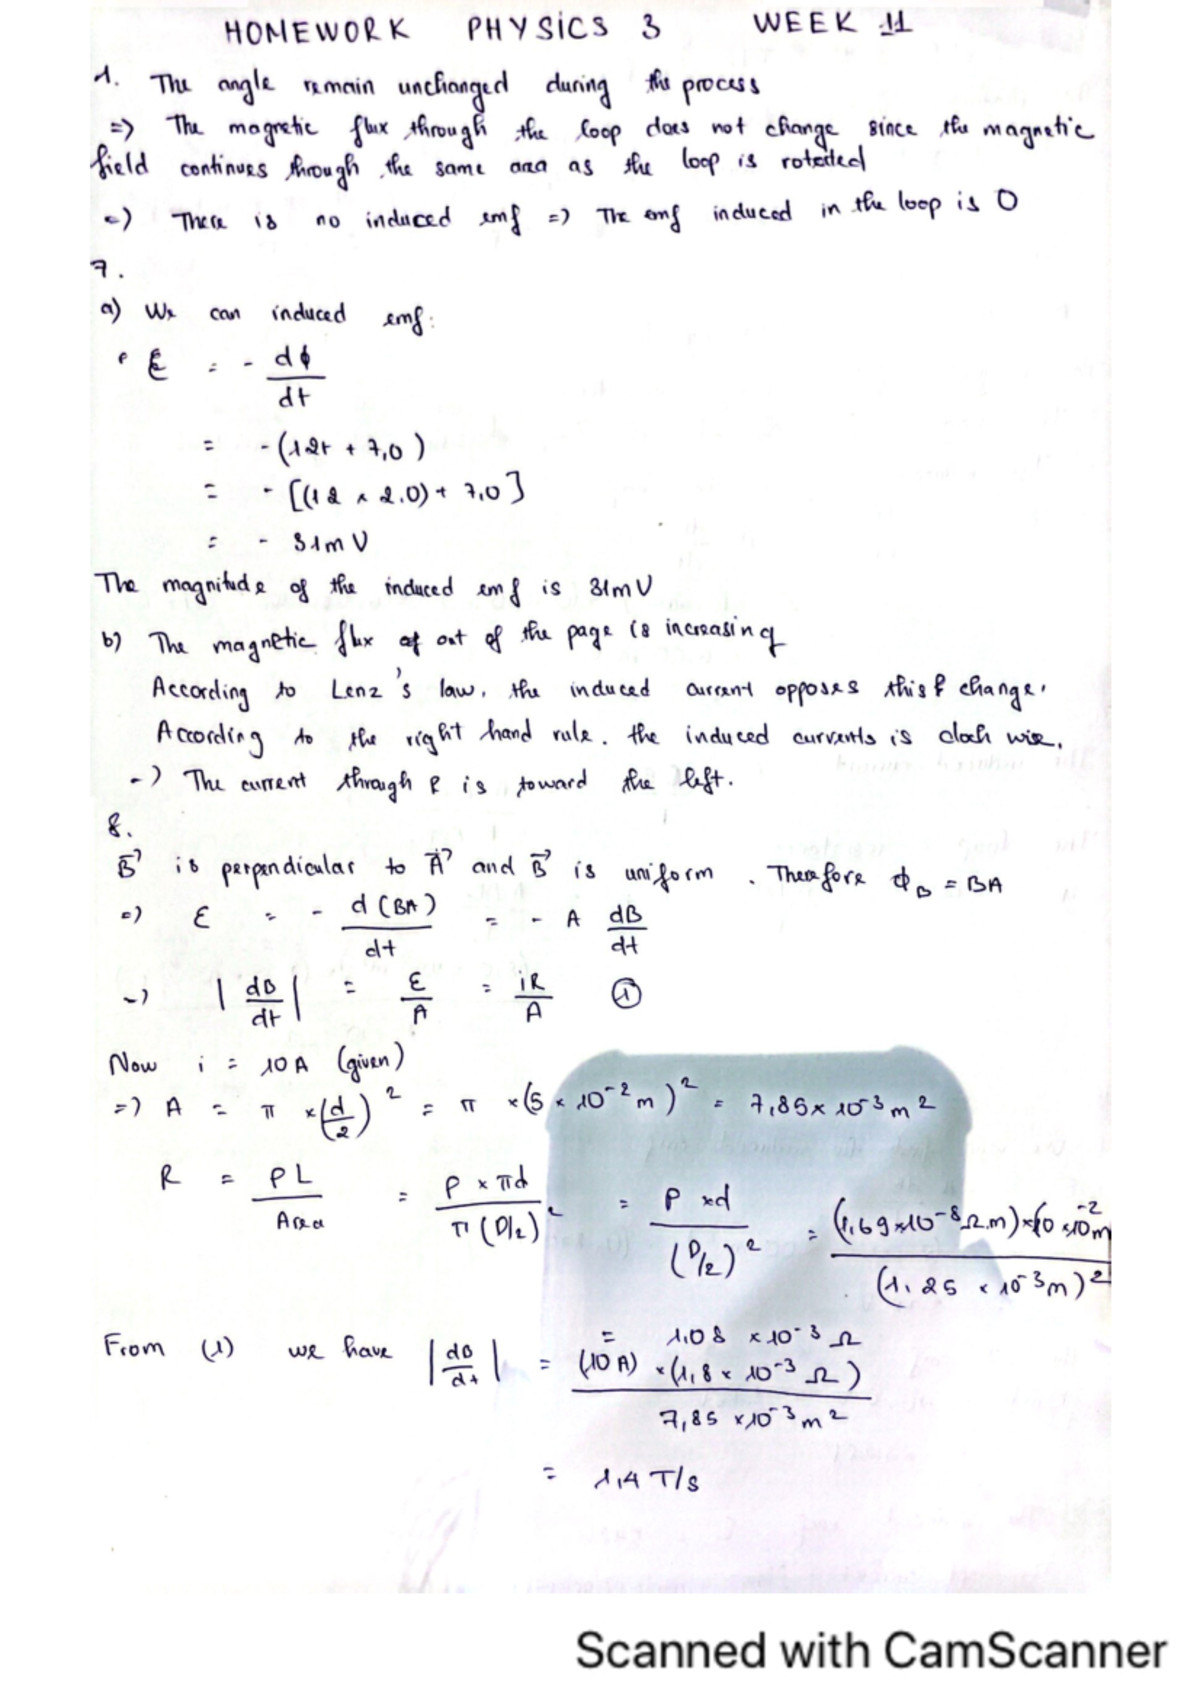 HOMEWORK PHYSICS 3 WEEK 11
1. The angle remain unchanged during the process
=) The magnetic flux through the loop does not change since the magnetic
field continues through the same area as the loop is rotated
=) There is no induced emf =) The emf induced in the loop is 0
7.
a) We can induced emf:
ℰ = - dϕ/dt
= - (12t + 7,0)
= - [(12 x 2.0) + 7,0]
= - 31mV
The magnitude of the induced emf is 31mV
b) The magnetic flux of out of the page is increasing
According to Lenz's law, the induced current opposes this change.
According to the right hand rule. the induced currents is cloch wise.
-) The current through R is toward the left.
8.
B⃗ is perpendicular to A⃗ and B⃗ is uniform. Therefore ϕ_B = BA
=) ℰ = - d(BA)/dt = - A dB/dt
-) |dB/dt| = ℰ/A = iR/A ①
Now i = 10A (given)
=) A = π x (d/2)² = π x (5 x 10⁻² m)² = 7,85 x 10⁻³ m²
R = ρL/Area = ρ x πd/π(D/2)² = ρ x d/(D/2)² = (1,69 x 10⁻⁸ Ω.m) x (10 x 10⁻² m/(1.25 x 10⁻³ m)²
= 1.08 x 10⁻³ Ω
From (1) we have |dB/dt| = (10A) x (1,8 x 10⁻³ Ω)/7,85 x 10⁻³ m²
= 1,4 T/s
Scanned with CamScanner